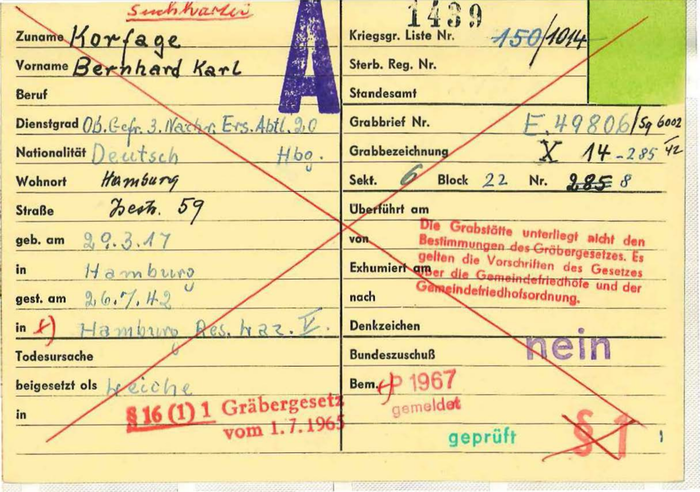 Suchkartei
A
1439
Zuname Korfage
Vorname Bernhard Karl
Beruf
Dienstgrad Ob. Gefr. 3. Nachr. Ers. Abtl. 20
Nationalität Deutsch Hbg.
Wohnort Hamburg
Straße 59
geb. am 29.3.17
in Hamburg
gest. am 26.7.42
in Hamburg Res. Laz. V.
Todesursache
beigesetzt als Leiche
in
§ 16 (1) 1 Gräbergesetz
vom 1.7.1965
Kriegsgr. Liste Nr. 150/1014
Sterb. Reg. Nr.
Standesamt
Grabbrief Nr. E. 49806/Sg 6002
Grabbezeichnung X 14-285 /42
Sekt. 6 Block 22 Nr. 285 8
Überführt am
von
Exhumiert am
nach
Die Grabstätte unterliegt nicht den
Bestimmungen des Gräbergesetzes. Es
gelten die Vorschriften des Gesetzes
über die Gemeindefriedhöfe und der
Gemeindefriedhofsordnung.
Denkzeichen
Bundeszuschuß nein
Bem. P 1967
gemeldet
geprüft
§ 1